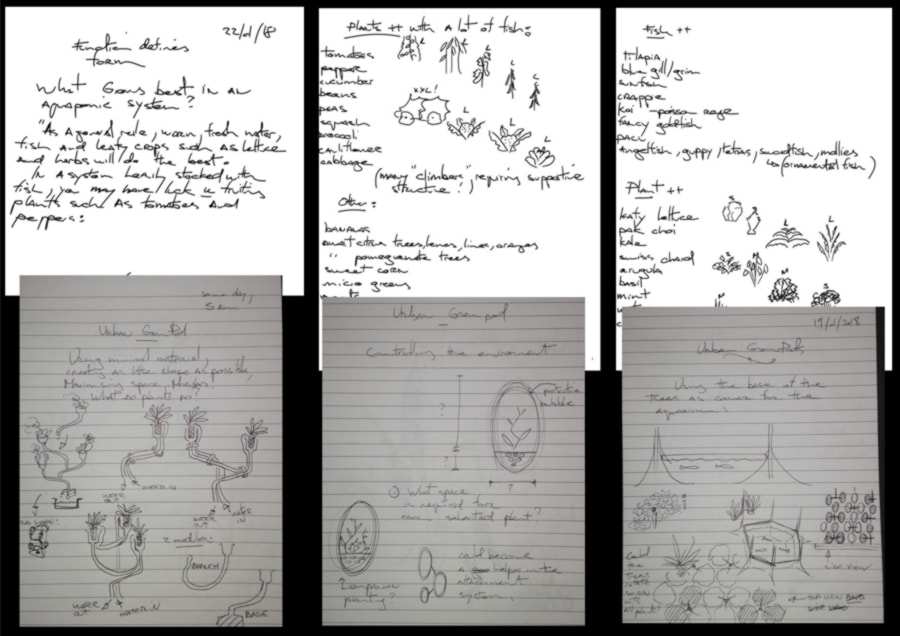 22/01/18
Function defines
form
What Grows best in an
Aquaponic system?
"As a general rule, warm, fresh water,
fish and leafy crops such as lettice
and herbs will do the best.
In a system heavily stocked with
fish, you may have luck w fruiting
plants such as tomatoes and
peppers:
Plants ++ with a lot of fish:
tomatoes
pepper
cucumber
beans
peas
squash
brocoli
cauliflower
cabbage
L
L
L
L
L
XXL!
L
L
L
(many "climbers", requiring supportive
structure!)
Other:
bananas
citrus trees, lemons, limes, oranges
" pomegranate trees
sweet corn
micro greens
Fish ++
tilapia
blue gill/
sunfish
crappie
koi
fancy goldfish
pacu
angelfish, guppy, tetras, swordfish, mollies
(ornamental fish)
Plant ++
leafy lettuce
pak choi
kale
swiss chard
arugula
basil
mint
S
S
L
L
S
M
M
S
same day,
Urban GrowPod
Using minimal material,
creating as little shape as possible,
Maximising space,
What do plants do?
WATER OUT
WATER IN
WATER OUT
WATER IN
2 modules:
BRANCH
WATER OUT
WATER IN
BASE
Urban Growpod
Controlling the environment
protective
bubble
?
?
?
① What space
is required for
each selected plant?
2 companion
planting?
could become
a helper in the
attachment
system.
19/01/2018
Urban GrowPods
Using the base of the
trees as corner for the
aquarium!
could
the
trees
all plants
Side view